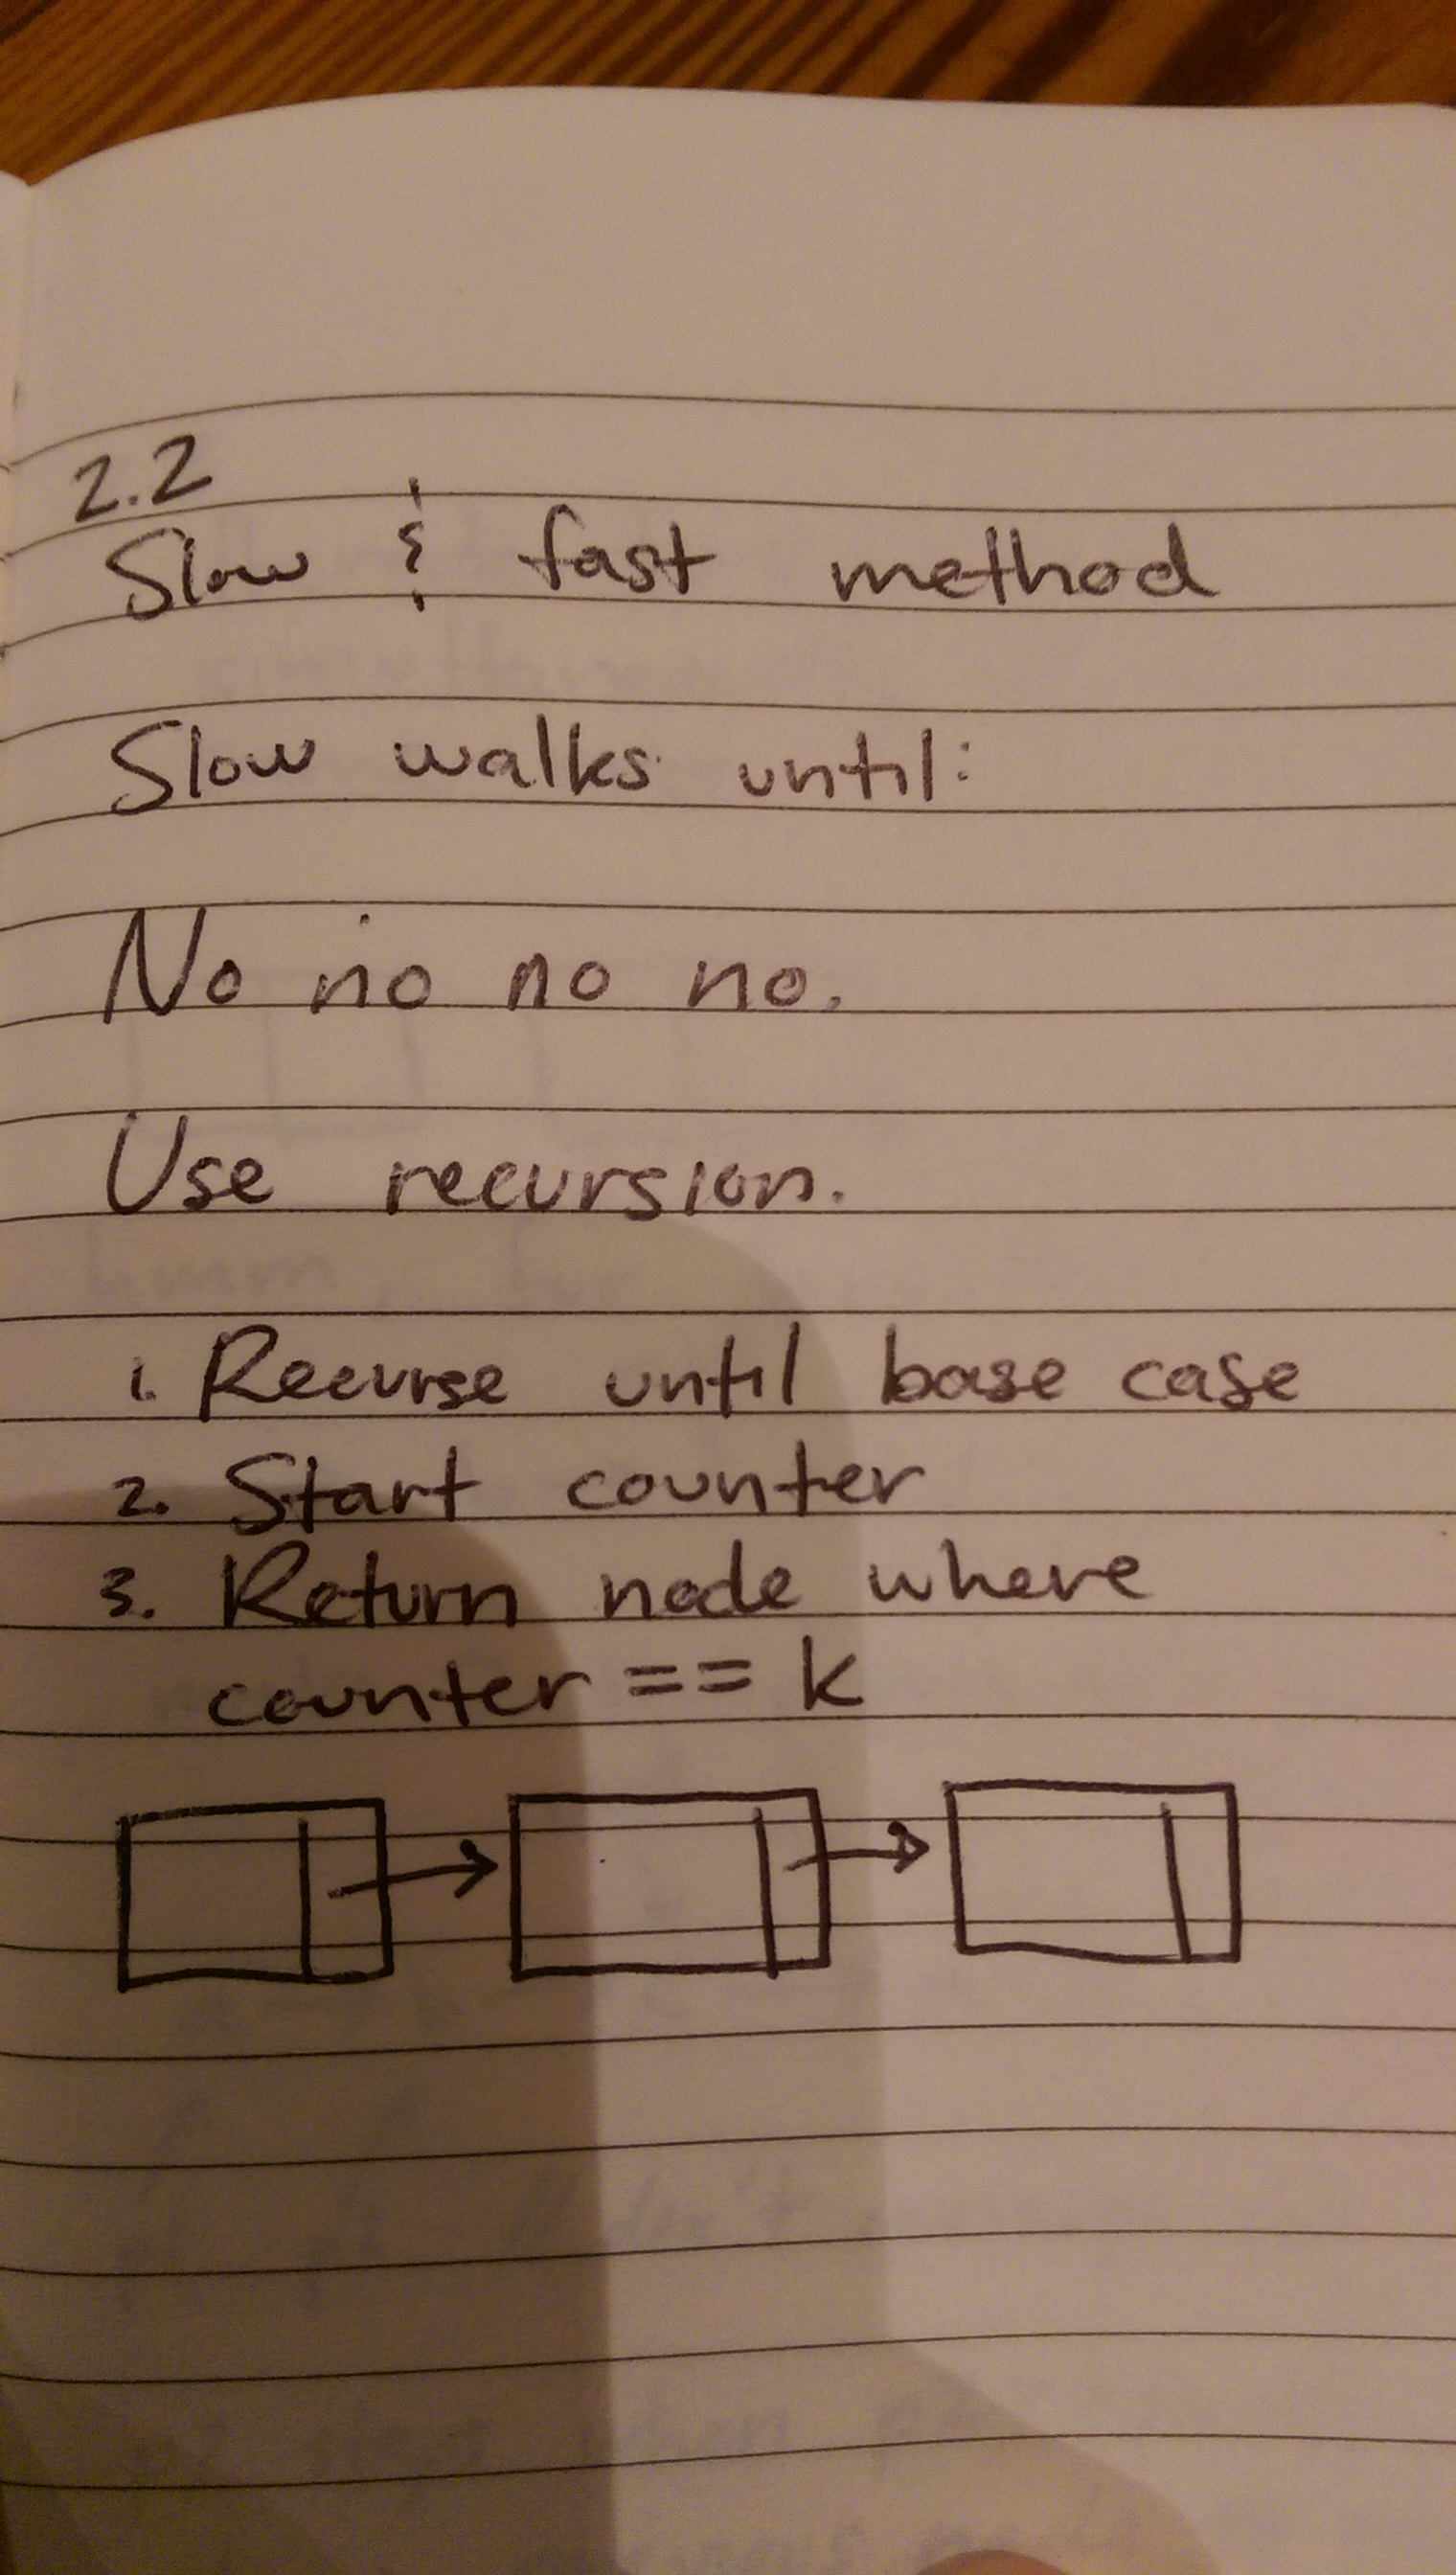 2.2
Slow & fast method
Slow walks until:
No no no no.
Use recursion.
1. Recurse until base case
2. Start counter
3. Return node where
counter == k